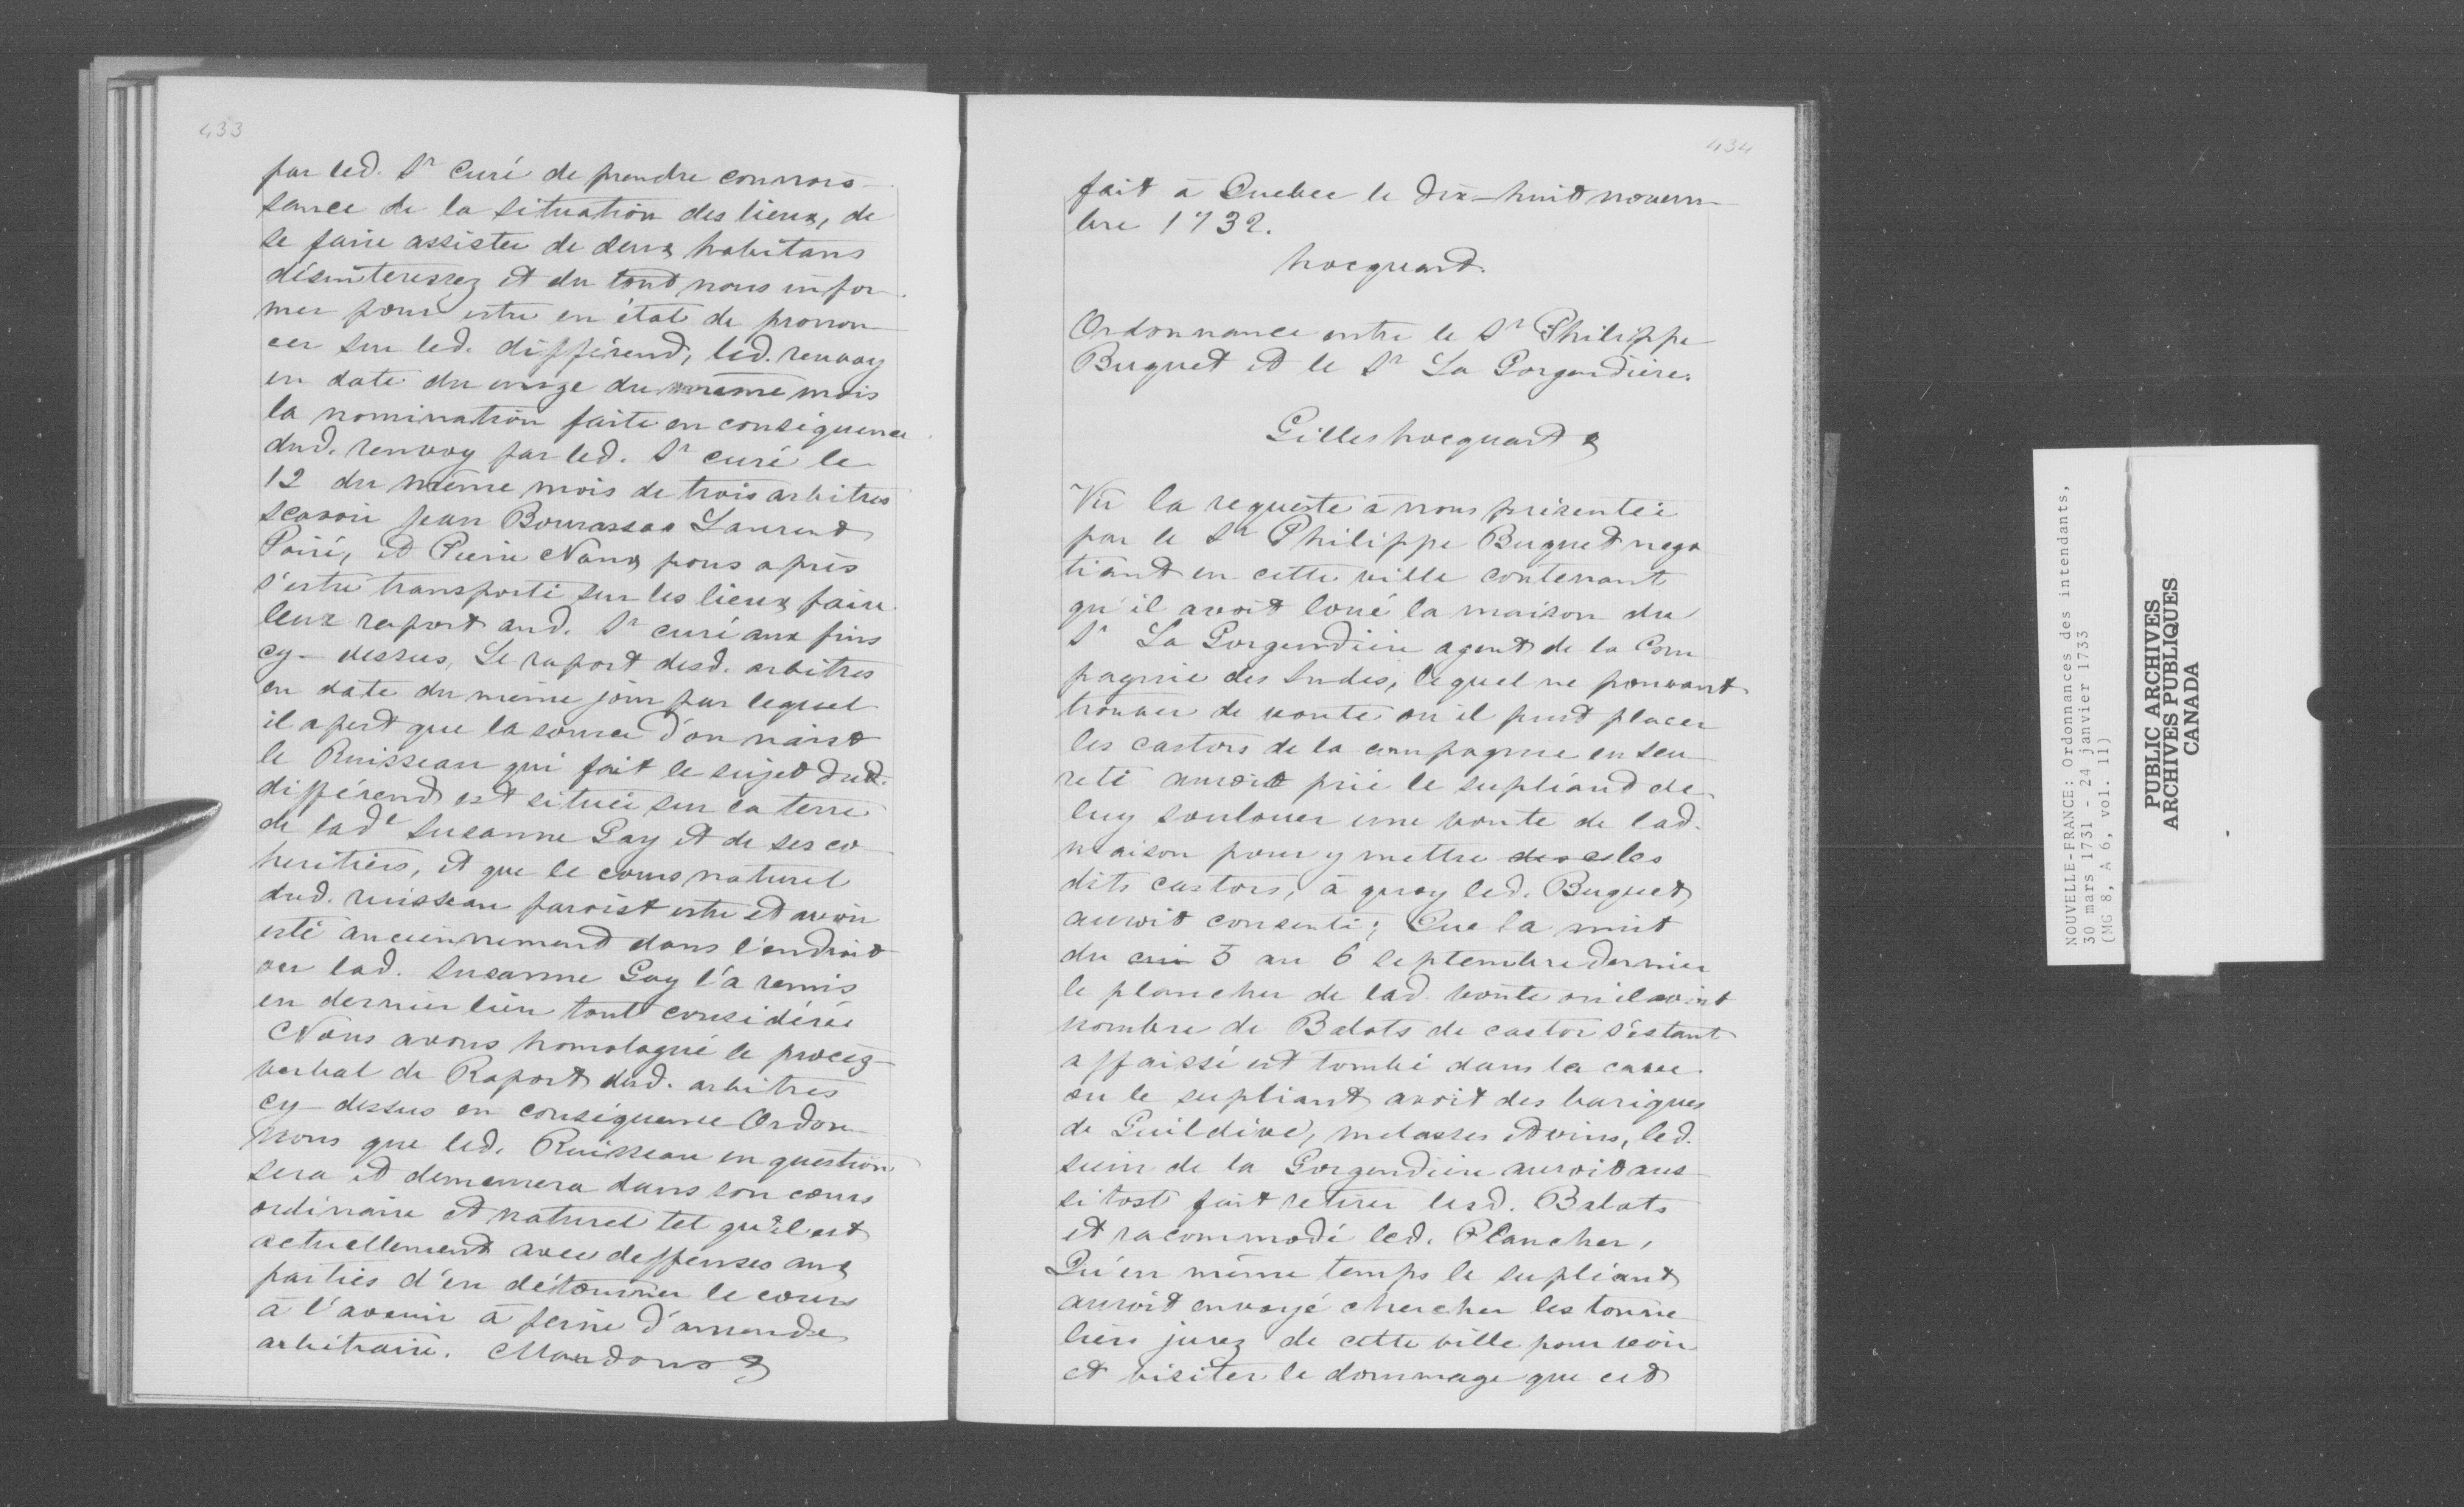 433
par led. Sr Curé de prendre connois-
sance de la situation des lieux, de
se faire assister de deux habitans
désinteressez et du tout nous infor-
mer pour estre en état de pronon-
cer sur led. différend, led. renvoy
en date du onze du même mois
la nomination faite en conséquence
dud. renvoy par led. Sr curé le
12 du même mois de trois arbitres
scavoir Jean Bourassas Laurent
Poiré, et Pierre Naux pous après
s'estre transporté sur les lieux faire
leur raport aud. Sr curé aux fins
cy-dessus, Le raport desd. arbitres
en date du même jour par lequel
il apert que la source d'ou naist
le Ruisseau qui fait le sujet dud.
différend est située sur la terre
de lade Susanne Gay et de ses co-
heritiers, et que le cours naturel
dud. ruisseau paroist estre et avoir
esté anciennement dans l'endroit
ou lad. Susanne Gay l'a remis
en dernier lieu tout considérée
Nous avons homologué le procez-
verbal de Raport desd. arbitres
cy-dessus en conséquence Ordon-
nons que led. Ruisseau en question
sera et demeurera dans son cours
ordinaire et naturel tel qu'il est
actuellement avec deffenses aux
parties d'en détourner le cours
à l'avenir à peine d'amende
arbitraire. Mandons &
434
fait à Quebec le dix-huit novem-
bre 1732.
hocquart.
Ordonnance entre le Sr Philippe
Buguet et le Sr La Gorgendiere.
Gilles hocquart &
Vu la requeste à nous présentée
par le Sr Philippe Buguet nego-
tiant en cette ville contenant
qu'il avoit loué la maison du
Sr La Gorgendiere agent de la Com-
pagnie des Indes, lequel ne pouvant
trouver de voute ou il pust placer
les castors de la compagnie en seu-
reté auroit prié le supliand de
luy soulouer une voute de lad.
maison pour y mettre les
dits castors, à quoy led. Buguet
auroit consenti; Que la nuit
du 5 au 6 septembre dernier
le plancher de lad. voute ou il avoit
nombre de Balots de castor s'estant
affaissé est tombé dans la cave
ou le supliant avoit des bariques
de Guildive, melasses et vins, led.
sieur de la Gorgendiere auroit aus-
sitost fait retirer lesd. Balots
et racommodé led. Plancher,
Qu'en même temps le supliant
auroit envoyé chercher les tonne-
liers jurez de cette ville pour voir
et visiter le dommage que cet
NOUVELLE-FRANCE: Ordonnances des intendants,
30 mars 1731 - 24 janvier 1733
(MG 8, A 6, vol. 11)
PUBLIC ARCHIVES
ARCHIVES PUBLIQUES
CANADA